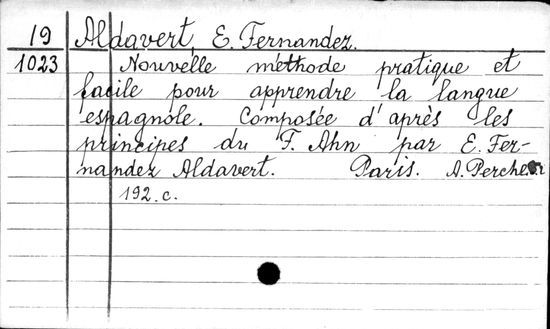 19 Aldavert, E. Fernandez.
1023 Nouvelle méthode pratique et
facile pour apprendre la langue
espagnole. Composée d'après les
principes du F. Ahn par E. Fer-
nandez Aldavert. Paris. A. Percheur
192.c.